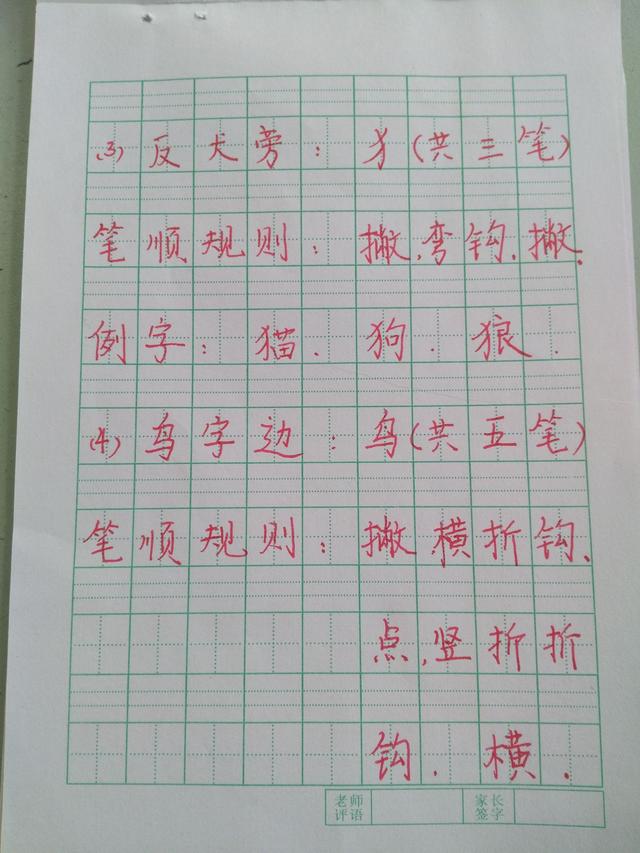 (3)反犬旁：犭(共三笔)
笔顺规则：撇、弯钩、撇.
例字：猫、狗、狼.
(4)鸟字边：鸟(共五笔)
笔顺规则：撇、横折钩、
点、竖折折
钩、横.
老师评语 家长签字